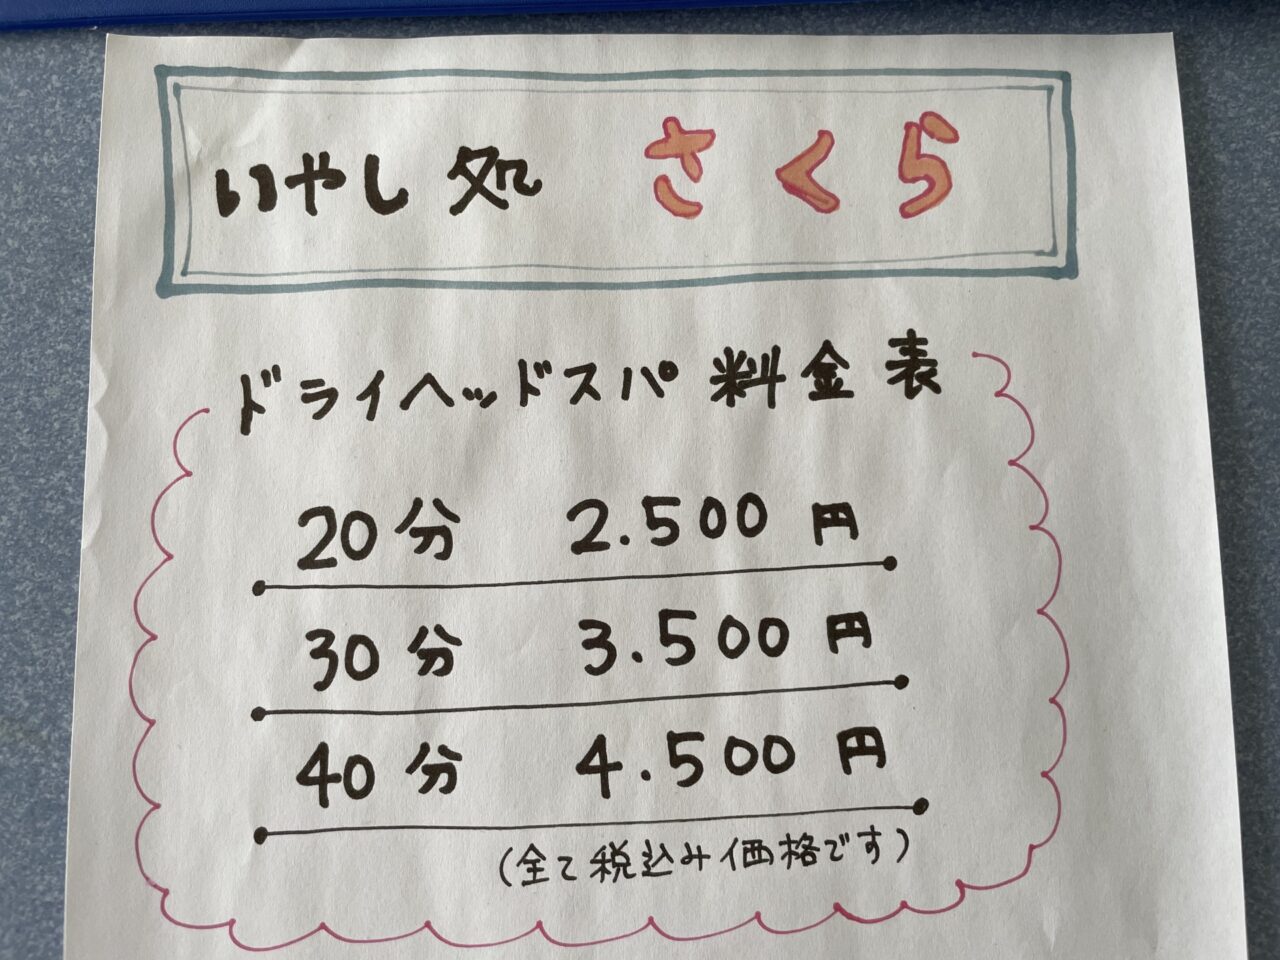 いやし処 さくら
ドライヘッドスパ 料金表
20分 2.500円
30分 3.500円
40分 4.500円
(全て税込み価格です)